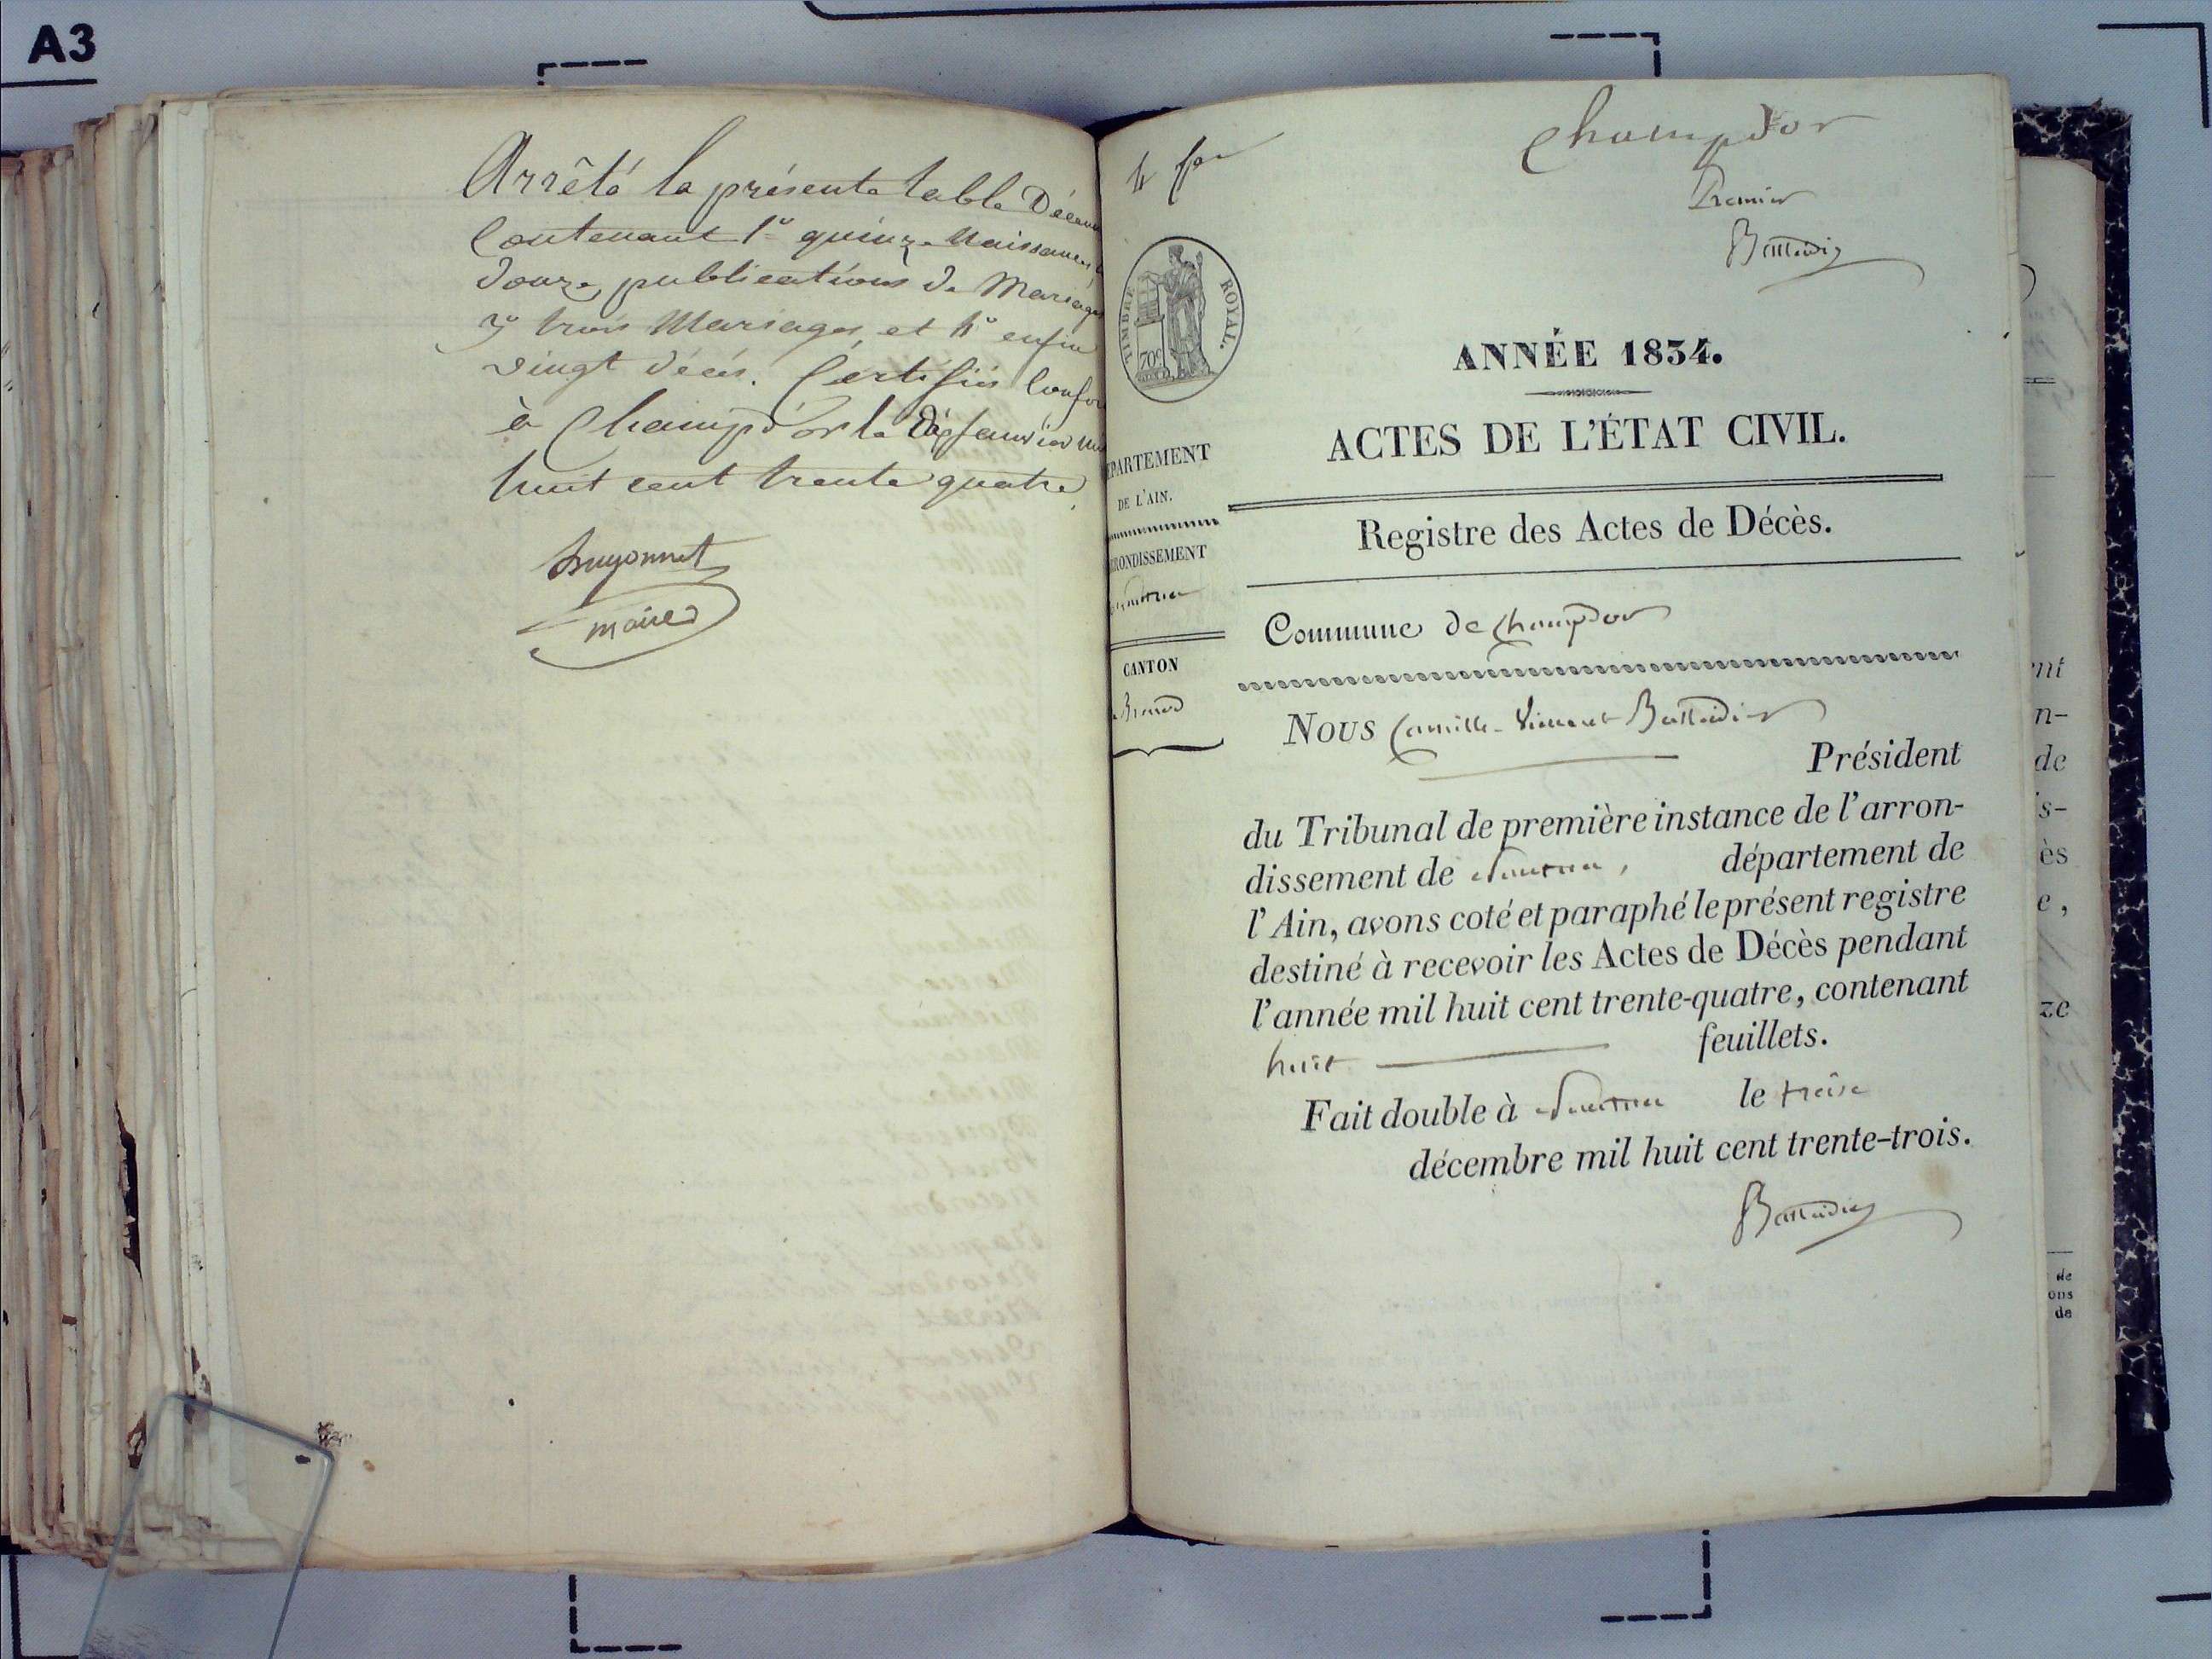 A3
Arrêté la présente table Décen
Contenant 1° quinze Naissances
douze publications de Mariages
3° trois Mariages, et 4° enfin
vingt décès. Certifiés Confor
à Champd'or le janvier mil
huit cent trente quatre
maire
Champdor
Premier
TIMBRE ROYAL.
70c
ANNÉE 1834.
ACTES DE L'ÉTAT CIVIL.
PARTEMENT
DE L'AIN.
Registre des Actes de Décès.
RONDISSEMENT
Commune de Champdor
CANTON
Brenod
Nous Camille-Vincent
Président
du Tribunal de première instance de l'arron-
dissement de Nantua, département de
l'Ain, avons coté et paraphé le présent registre
destiné à recevoir les Actes de Décès pendant
l'année mil huit cent trente-quatre, contenant
huit feuillets.
Fait double à Nantua le treize
décembre mil huit cent trente-trois.
nt
n-
de
s-
ès
e,
ze
de
ons
de